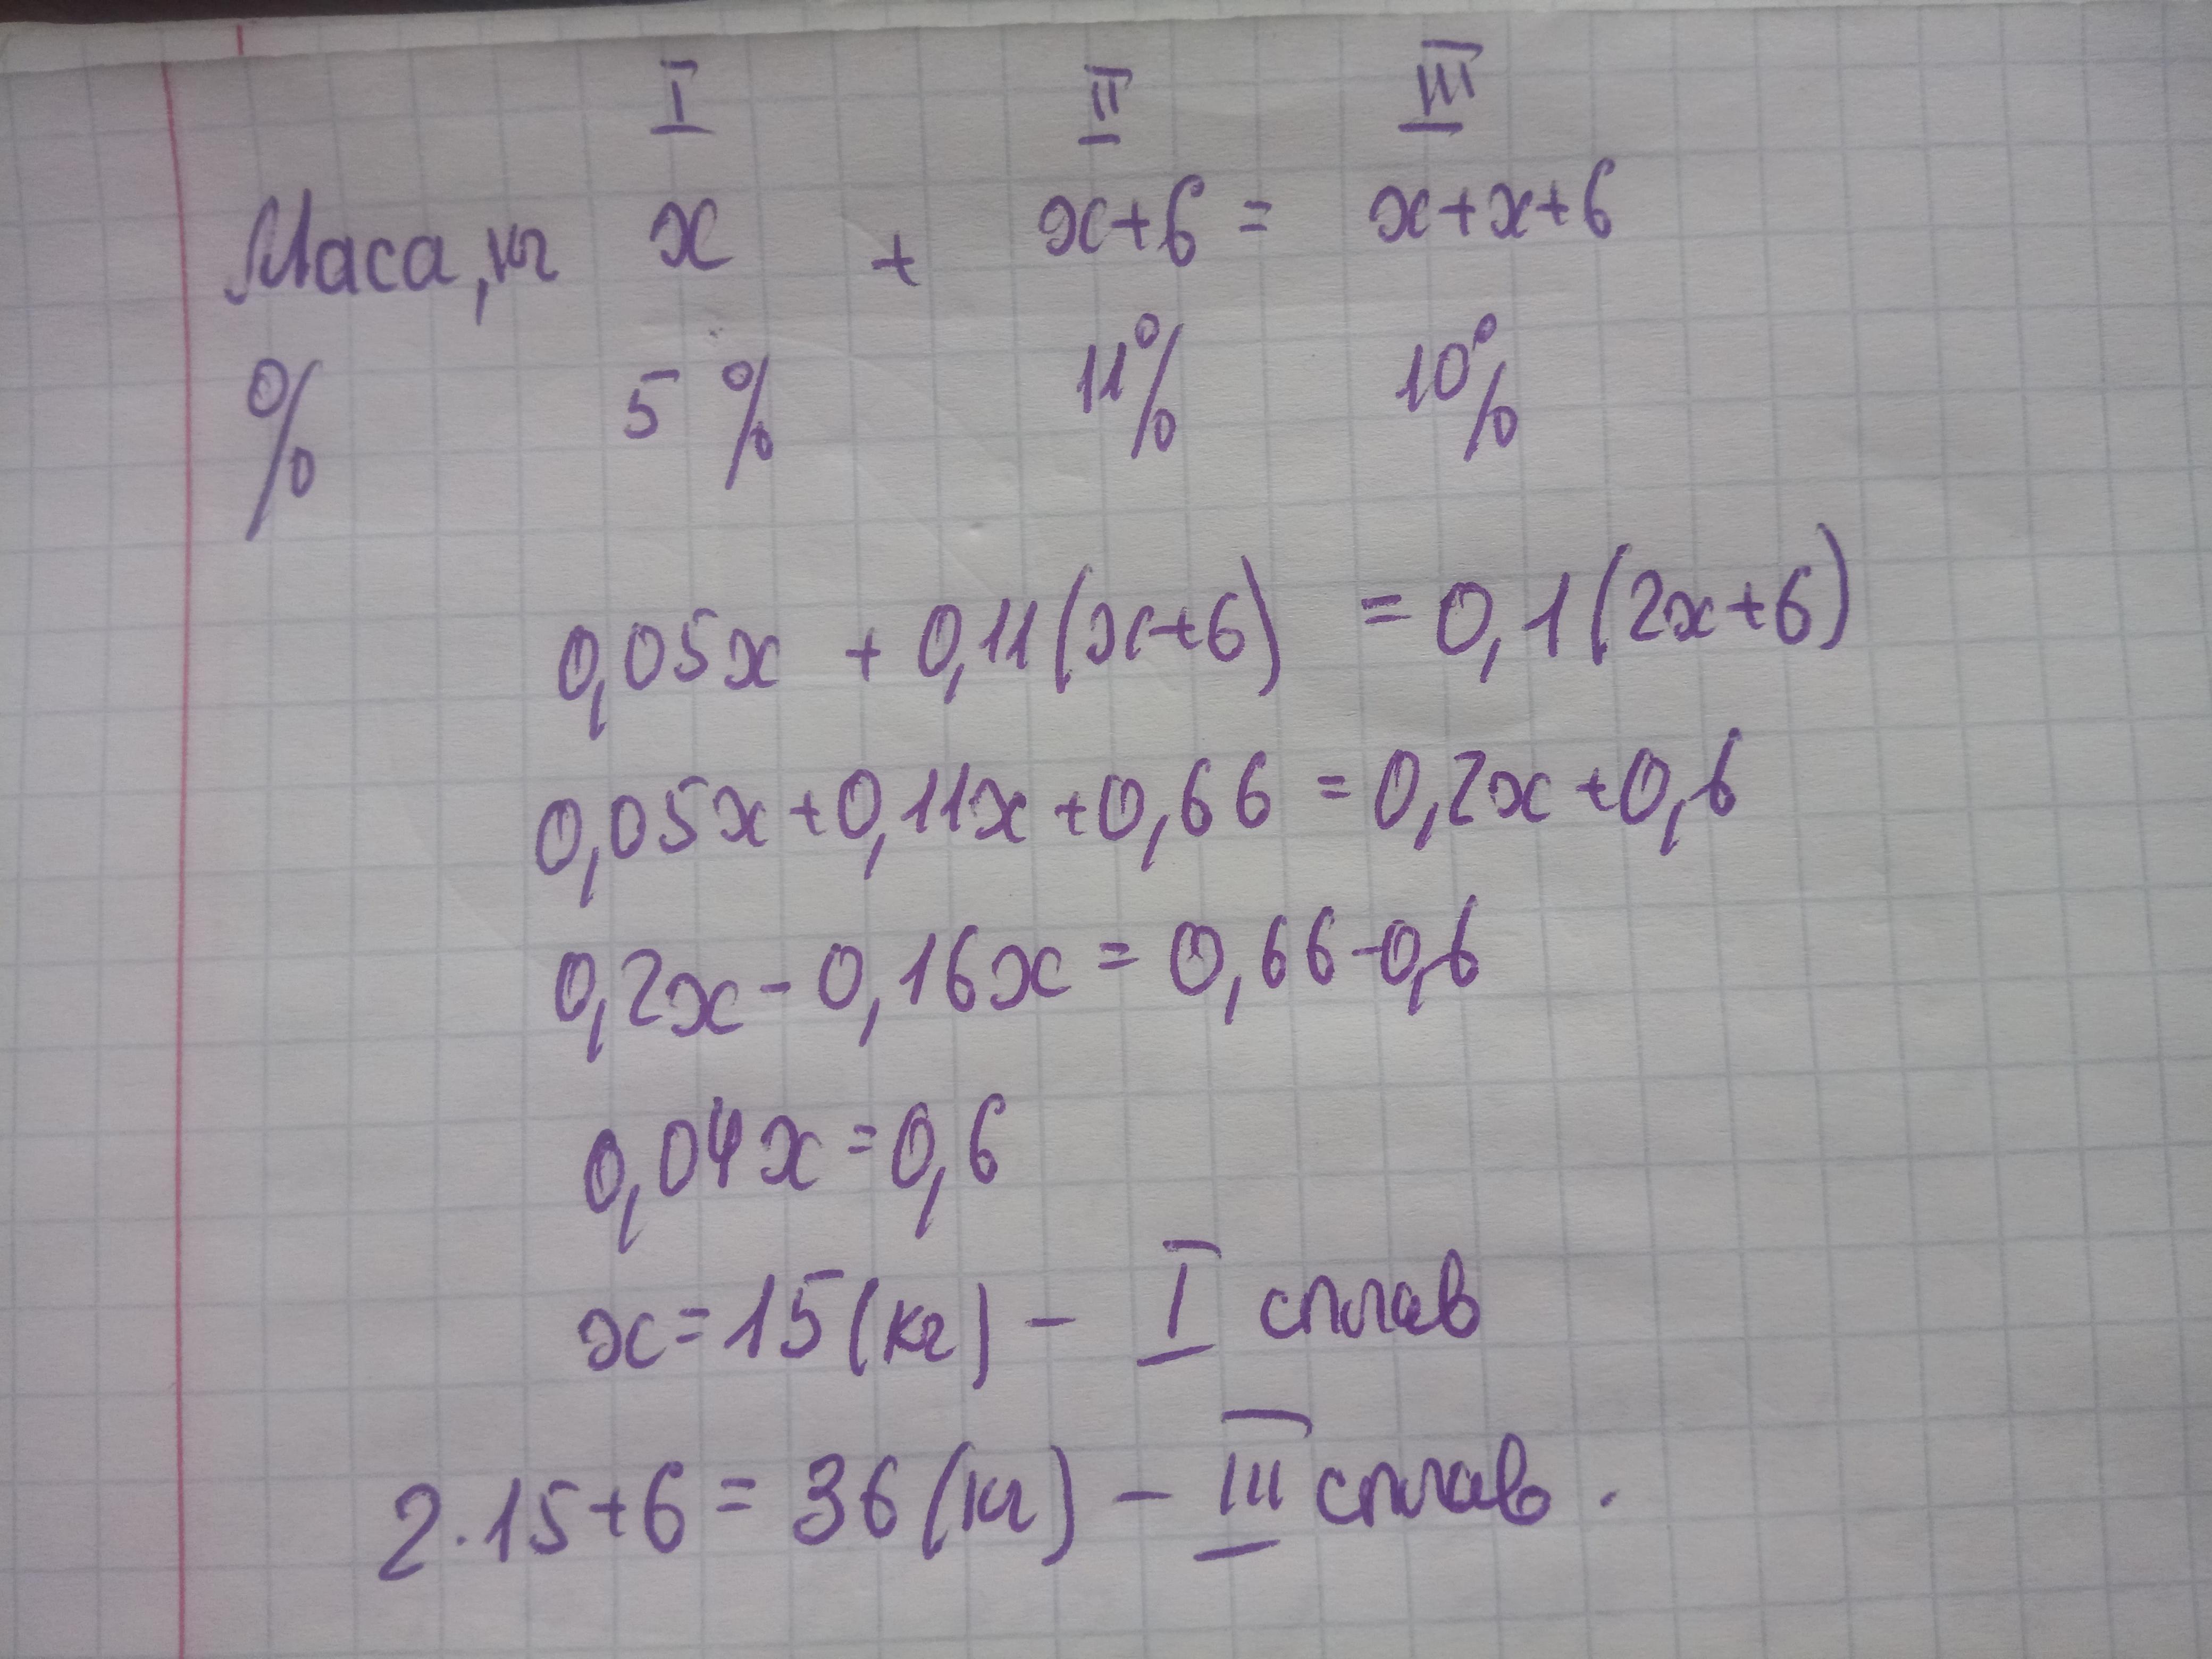 I II III
Маса, кг x + x+6 = x+x+6
% 5% 11% 10%
0,05x + 0,11(x+6) = 0,1(2x+6)
0,05x+0,11x+0,66 = 0,2x+0,6
0,2x-0,16x = 0,66-0,6
0,04x=0,6
x=15(кг) - I сплав
2·15+6 = 36(кг) - III сплав.